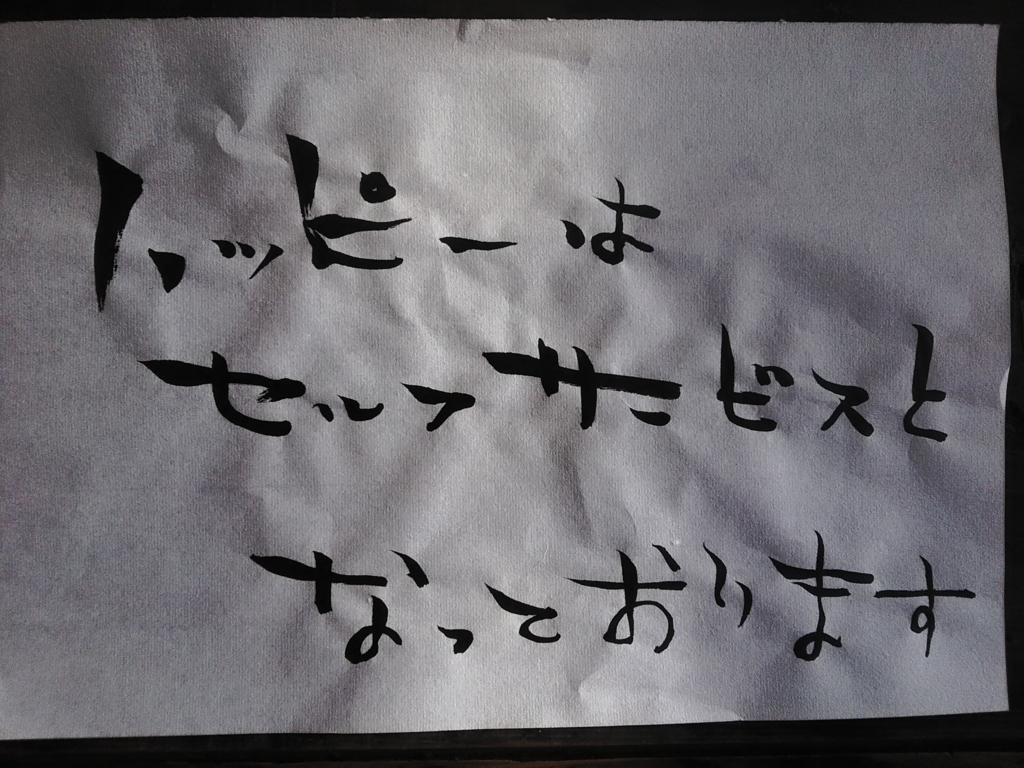 ハッピーは
セルフサービスと
なっております